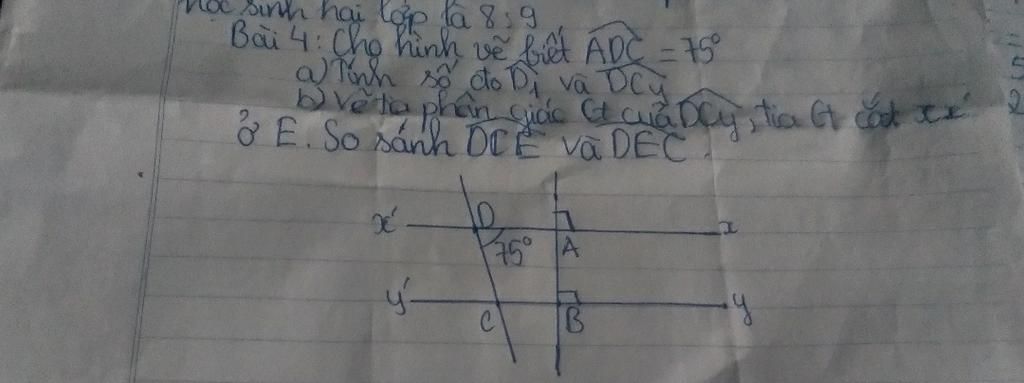 học sinh hai lớp là 8:9
Bài 4: Cho hình vẽ biết ADC = 75°
a) Tính số đo D1 và DCy
b) Vẽ tia phân giác Ct của DCy, tia Ct cắt xx'
ở E. So sánh DCE và DEC.
x' D A x
75°
y' C B y
=
5
2